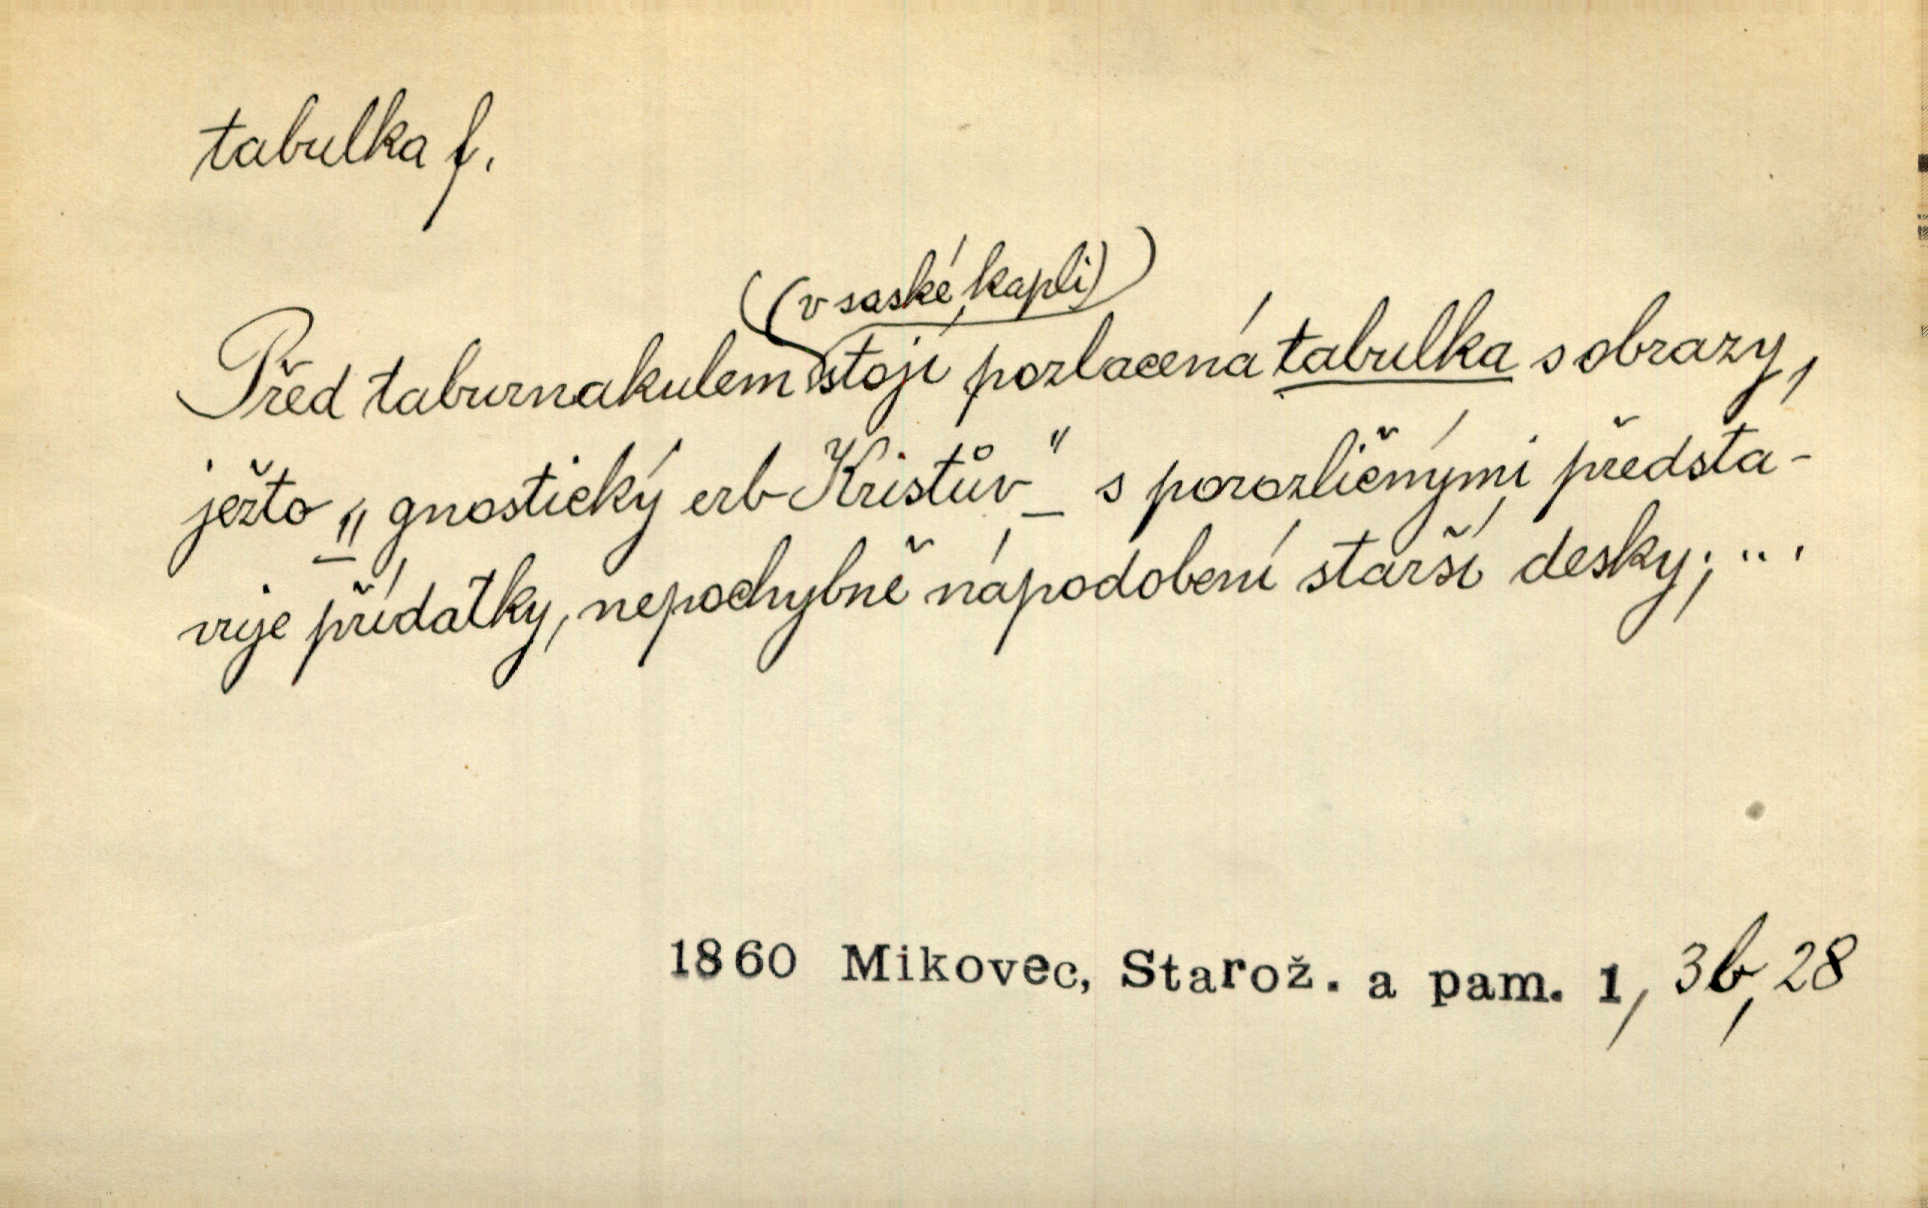 tabulka f.
(v saské kapli)
Před taburnakulem stojí pozlacená tabulka s obrazy,
ježto „gnostický erb Kristův“ s porozličnými předsta-
vuje přídatky, nepochybně nápodobení starší desky; ...
1860 Mikovec, Starož. a pam. 1, 3b, 28